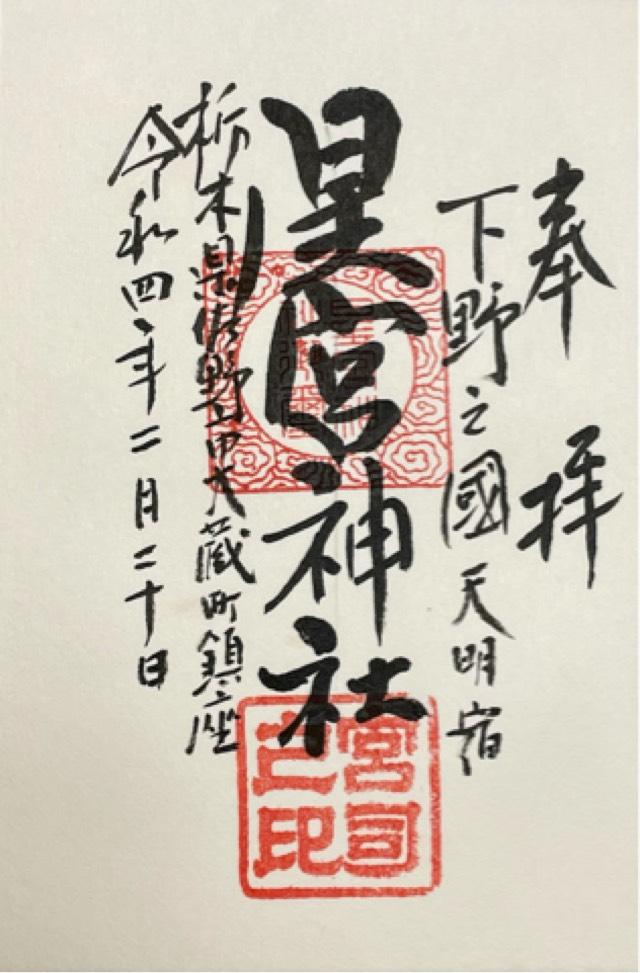 奉拝
下野之國天明宿
星宮神社
栃木県佐野市大蔵町鎮座
令和四年二月二十日
宮司
之印